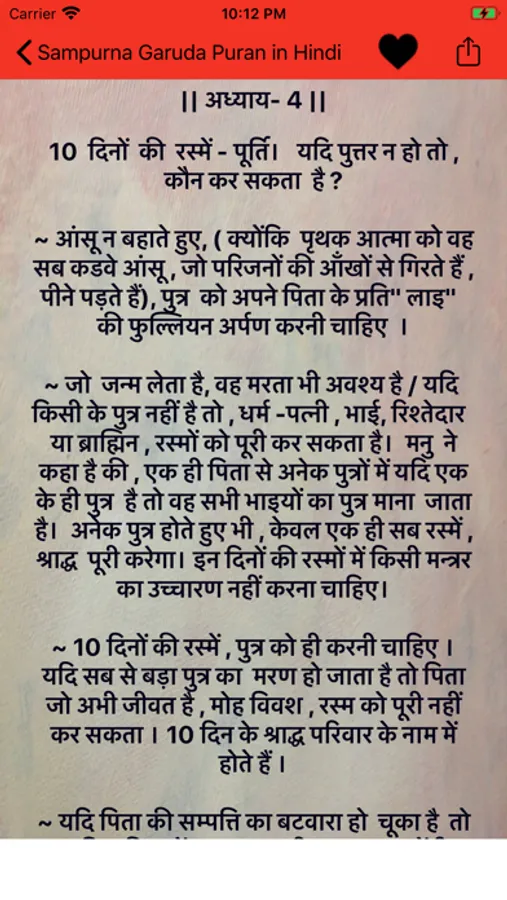 Carrier 10:12 PM
Sampurna Garuda Puran in Hindi
|| अध्याय- 4 ||
10 दिनों की रस्में - पूर्ति। यदि पुत्तर न हो तो ,
कौन कर सकता है ?
~ आंसू न बहाते हुए, ( क्योंकि पृथक आत्मा को वह
सब कडवे आंसू , जो परिजनों की आँखों से गिरते हैं ,
पीने पड़ते हैं), पुत्र को अपने पिता के प्रति" लाइ"
की फुल्लियन अर्पण करनी चाहिए ।
~ जो जन्म लेता है, वह मरता भी अवश्य है / यदि
किसी के पुत्र नहीं है तो , धर्म -पत्नी , भाई, रिश्तेदार
या ब्राह्मिन , रस्मों को पूरी कर सकता है। मनु ने
कहा है की , एक ही पिता से अनेक पुत्रों में यदि एक
के ही पुत्र है तो वह सभी भाइयों का पुत्र माना जाता
है। अनेक पुत्र होते हुए भी , केवल एक ही सब रस्में ,
श्राद्ध पूरी करेगा। इन दिनों की रस्मों में किसी मन्त्रर
का उच्चारण नहीं करना चाहिए।
~ 10 दिनों की रस्में , पुत्र को ही करनी चाहिए ।
यदि सब से बड़ा पुत्र का मरण हो जाता है तो पिता
जो अभी जीवत है , मोह विवश , रस्म को पूरी नहीं
कर सकता । 10 दिन के श्राद्ध परिवार के नाम में
होते हैं ।
~ यदि पिता की सम्पत्ति का बटवारा हो चूका है तो